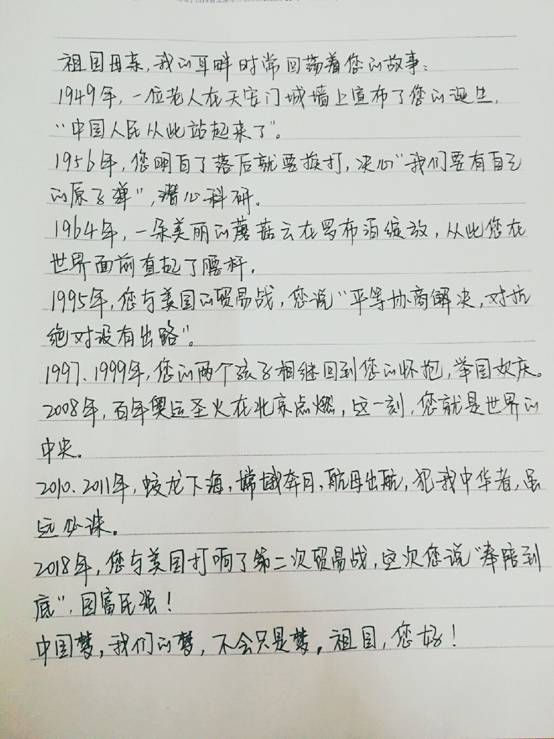 祖国母亲,我的耳畔时常回荡着您的故事:
1949年,一位老人在天安门城墙上宣布了您的诞生,
“中国人民从此站起来了”。
1956年,您明白了落后就要挨打,决心“我们要有自己
的原子弹”,潜心科研。
1964年,一朵美丽的蘑菇云在罗布泊绽放,从此您在
世界面前直起了腰杆。
1995年,您与美国的贸易战,您说“平等协商解决,对抗
绝对没有出路”。
1997、1999年,您的两个孩子相继回到您的怀抱,举国欢庆。
2008年,百年奥运圣火在北京点燃,这一刻,您就是世界的
中央。
2010、2011年,蛟龙下海,嫦娥奔月,航母出航,犯我中华者,虽
远必诛。
2018年,您与美国打响了第二次贸易战,这次您说“奉陪到
底”,国富民强!
中国梦,我们的梦,不会只是梦,祖国,您好!